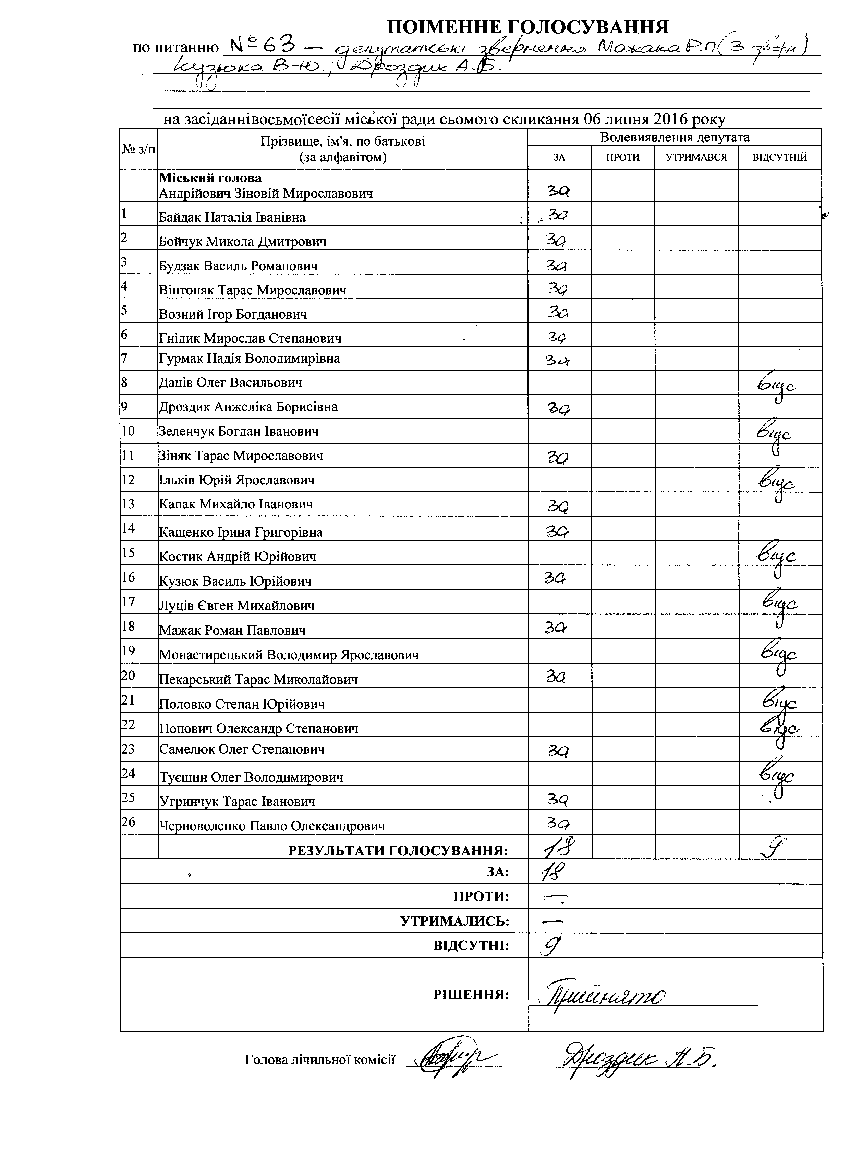 ПОІМЕННЕ ГОЛОСУВАННЯ
по питанню №63 – депутатські звернення Мажака Р.П (3 зверн)
Кузюка В.Ю., Дроздик А.Б.
на засіданнівосьмоїсесії міської ради сьомого скликання 06 липня 2016 року
№ з/п Прізвище, ім'я, по батькові (за алфавітом) Волевиявлення депутата
ЗА ПРОТИ УТРИМАВСЯ ВІДСУТНІЙ
Міський голова
Андрійович Зіновій Мирославович за
1 Байдак Наталія Іванівна за
2 Бойчук Микола Дмитрович за
3 Будзак Василь Романович за
4 Вінтоняк Тарас Мирославович за
5 Возний Ігор Богданович за
6 Гнідик Мирослав Степанович за
7 Гурмак Надія Володимирівна за
8 Даців Олег Васильович відс
9 Дроздик Анжеліка Борисівна за
10 Зеленчук Богдан Іванович відс
11 Зіняк Тарас Мирославович за
12 Ільків Юрій Ярославович відс
13 Капак Михайло Іванович за
14 Кащенко Ірина Григорівна за
15 Костик Андрій Юрійович відс
16 Кузюк Василь Юрійович за
17 Луців Євген Михайлович відс
18 Мажак Роман Павлович за
19 Монастирецький Володимир Ярославович відс
20 Пекарський Тарас Миколайович за
21 Половко Степан Юрійович відс
22 Попович Олександр Степанович відс
23 Самелюк Олег Степанович за
24 Туєшин Олег Володимирович відс
25 Угринчук Тарас Іванович за
26 Черноволенко Павло Олександрович за
РЕЗУЛЬТАТИ ГОЛОСУВАННЯ: 18 9
ЗА: 18
ПРОТИ: —
УТРИМАЛИСЬ: —
ВІДСУТНІ: 9
РІШЕННЯ: Прийнято
Голова лічильної комісії Дроздик А.Б.